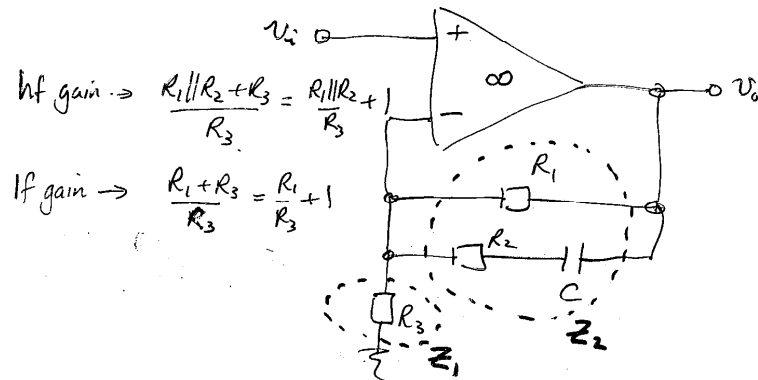 vi
+
∞
−
vo
hf gain → R1//R2 + R3 / R3 = R1//R2 / R3 + 1
lf gain → R1 + R3 / R3 = R1 / R3 + 1
R1
R2
C
R3
Z1
Z2